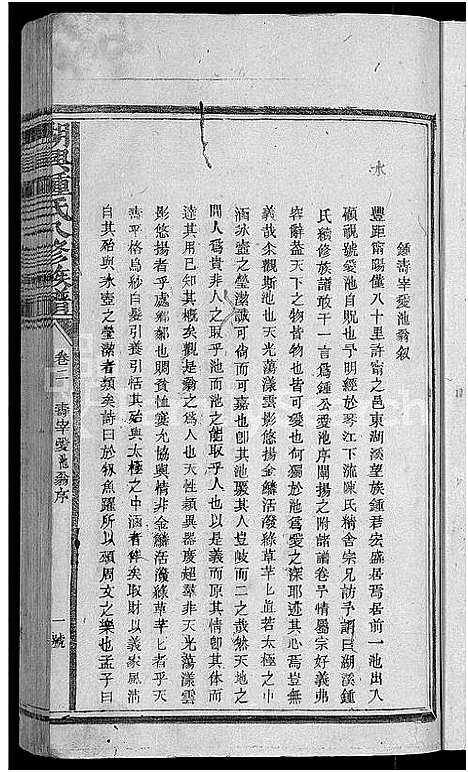 鍾壽宰愛池翁叙
豐距甯陽僅八十里許甯之邑東湖溪望族鍾君宏盛居焉居前一池出入
頋視號愛池自貺也予明經於琴江下流陳氏精舍宗兄訪予謂曰湖溪鍾
氏續修族譜敢干一言為鍾公愛池序闡揚之附諸譜卷予情屬宗好義弗
容辭盍天下之物皆物也皆可愛也何獨於池爲愛之深耶述其心焉豈無
義哉尒觀斯池也天光蕩漾雲影悠揚金鱗活潑綠草芊匕直若太極之中
涵氷壺之瑩潔誠可尚也可嘉也卽其池驗其人豈岐而二之哉然天地之
間人爲貴非人之取乎池而池之能取乎人也以是義而原其情卽其体而
達其用已知其槪矣觀是翁之爲人也天性穎異器度超羣非天光蕩漾雲
影悠揚者乎處鄉鄰也賙貧恤寡允協輿情非金鱗活潑綠草芊匕者乎天
壽平格烏紗白髮引養引恬其殆與太極之中涵者侔矣取財以義家風淸
白其殆與氷壺之瑩潔者類矣詩曰於牣魚躍所以頌周文之樂也孟子曰
湖興鍾氏八修族譜
卷二
壽宰愛池翁序
一號
水